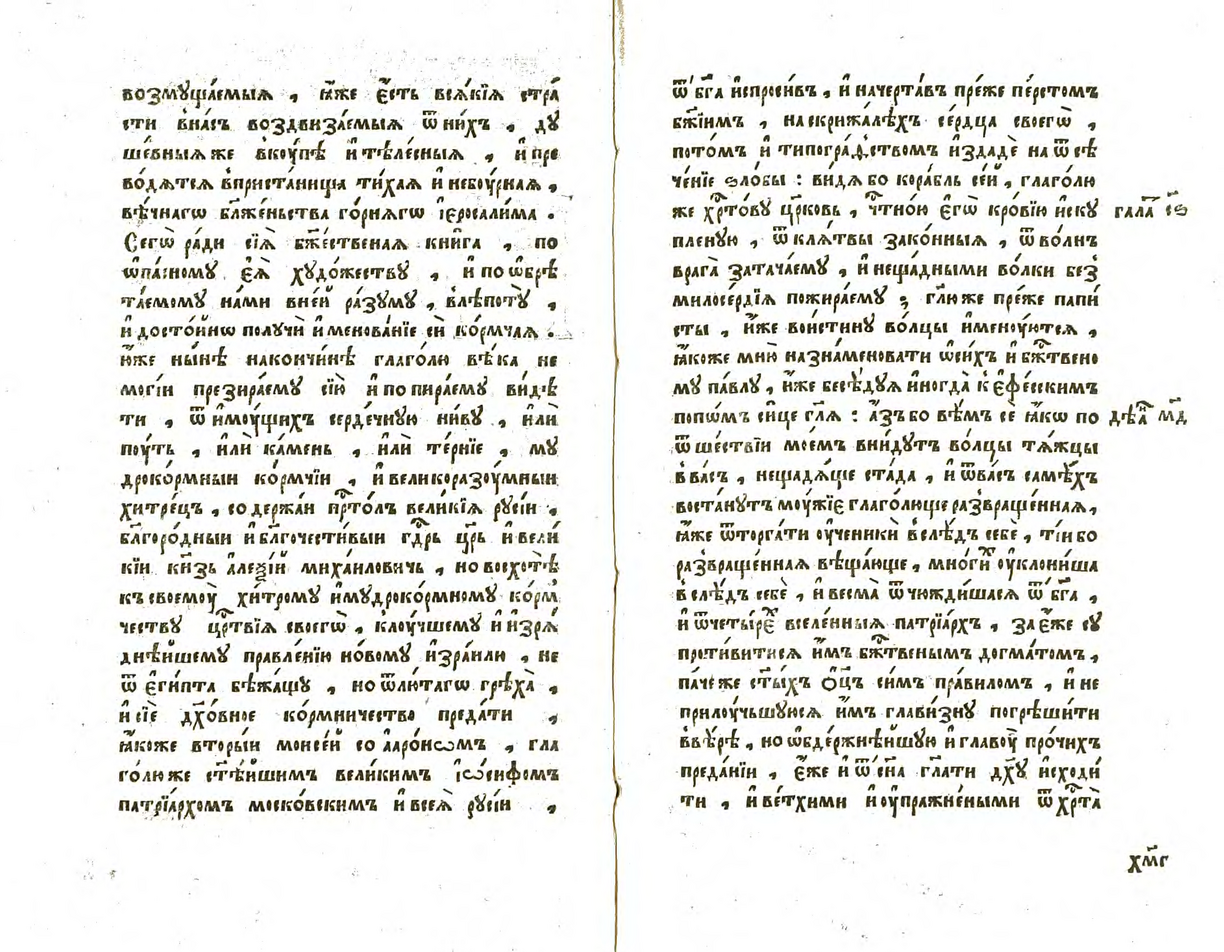 возмꙋща́емыѧ , ꙗ҆́же є҆́сть всѧ́кїѧ стра́
сти в̾на́съ воздвиза́емыѧ ѿ ни́хъ , дꙋ
ше́вныѧже вкꙋ́пѣ и҆ тѣле́сныѧ , и҆ пре
во́дѧтсѧ вприста́нища ти́хаѧ и҆ небоу́рнаѧ ,
вѣ́чнагѡ бл҃же́ньства го́рнѧгѡ і҆єросали́ма .
Сегѡ̀ ра́ди сїѧ̀ бж҃е́ственаѧ кни́га , по
ѡ҆па́сномꙋ є҆ѧ̀ хꙋдо́жествꙋ , и҆ по ѡ҆брѣ
та́емомꙋ на́ми вне́й ра́зꙋмꙋ , влѣ́потꙋ ,
и҆ досто́йнѡ полꙋчѝ и҆менова́нїе сѝ ко́рмчаѧ .
ю҆́же ны́нѣ накончи́нѣ глаго́лю вѣ́ка не
могі́и презира́емꙋ сїю̀ и҆ попира́емꙋ ви́дѣ
ти , ѿ и҆мꙋ́щихъ серде́чнꙋю ни́вꙋ , и҆лѝ
пꙋ́ть , и҆лѝ ка́мень , и҆лѝ те́рнїе , мꙋ
дроко́рмныи ко́рмчїи , и҆ великоразꙋ́мныи
хитре́цъ , содержа́и пр҇то́лъ вели́кїѧ рꙋсі́и ,
бл҃горо́дныи и҆ бл҃гочести́выи гд҇рь цр҃ь и҆ вели́
кїи кн҃зь а҆леѯі́й миха́иловичь , но восхотѣ̀
къ своемоу̀ хи́тромꙋ и҆ мꙋдроко́рмномꙋ корм
че́ствꙋ цр҇твїѧ своегѡ̀ , клꙋ́чшемꙋ и҆ и҆зрѧ́
днѣ́йшемꙋ правле́нїю но́вомꙋ і҆зра́илю , не
ѿ є҆ги́пта бѣжа́щꙋ , но ѿ лю́тагѡ грѣха̀ ,
и҆ сїѐ дх҃о́вное ко́рмничество преда́ти ,
ꙗ҆́коже вторы́и моисе́й со а҆аро́нѡмъ , гла
го́люже ст҃ѣ́йшимъ вели́кимъ і҆ѡ́сифомъ
патрїа́рхомъ моско́вскимъ и҆ всеѧ̀ рꙋсі́и ,
ѿ бг҃а и҆спроси́въ , и҆ начерта́въ пре́же пе́рстомъ
бж҃їимъ , наскрижа́лѣхъ се́рдца своегѡ̀ ,
пото́мъ и҆ типогра́фством и҆здадѐ на ѿсѣ
че́нїе ѕло́бы : ви́дѧ бо кора́бль се́й , глаго́лю
же хр҇то́вꙋ цр҃ковь , чт҇но́ю є҆гѡ̀ кро́вїю и҆скꙋ
пленꙋю , ѿ клѧ́твы зако́нныѧ , ѿ во́лнъ
врага̀ затача́емꙋ , и҆ неща́дными во́лки без̾
милосе́рдїѧ пожира́емꙋ ; гл҃юже пре́же папи́
сты , и҆̀же вои́стинꙋ во́лцы и҆менꙋ́ютсѧ ,
ꙗ҆́коже мню̀ назна́меновати ѡ҆ си́хъ и҆ бж҇твено
мꙋ па́влꙋ , и҆́же бесѣ́дꙋѧ и҆ногда̀ к̾ є҆фе́сскимъ
попѡ́мъ си́це гл҃ѧ : а҆́зъбо вѣ́мъ сѐ ꙗ҆́кѡ по
ѿшествїи мое́мъ вни́дꙋтъ во́лцы тѧ́жцы
в̾ва́съ , нещадѧ́ще ста́да , и҆ ѿ ва́съ самѣ́хъ
воста́нꙋтъ мꙋ́жїє глаго́люще развраще́ннаѧ ,
ꙗ҆́же ѿторга́ти оу҆ченикѝ в̾слѣ́дъ себѐ , ті́и бо
развраще́ннаѧ вѣща́юще , мно́ги оу҆клони́ша
в̾слѣ́дъ себѐ , и҆ весма̀ ѿчюжди́шасѧ ѿ бг҃а ,
и҆ ѿ четы́рє вселе́нныѧ патрїа́рхъ , за є҆́же сꙋ
проти́витисѧ и҆̀мъ бж҇твеным догма́томъ ,
па́че же ст҃ы́хъ ѻ҆ц҃ъ си́мъ пра́виломъ , и҆ не
прилꙋ́чьшꙋюсѧ и҆̀мъ глави́знꙋ погрѣши́ти
в̾вѣ́рѣ , но ѡ҆бдержнѣ́йшꙋю и҆ главꙋ̀ про́чихъ
преда́нїи , є҆́же и҆ ѿ сн҃а гл҃ати дх҃ꙋ и҆сходи́
ти , и҆ ве́тхими и҆ оу҆пражне́ными ѿ хр҇та̀
гала҇ ѕ҃і
дѣѧ҇ м҃д
хм҃г